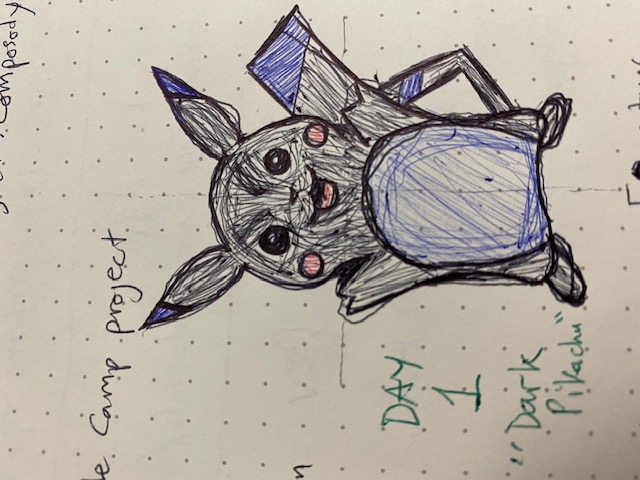 Composody
Camp project
DAY
1
"Dark
Pikachu"